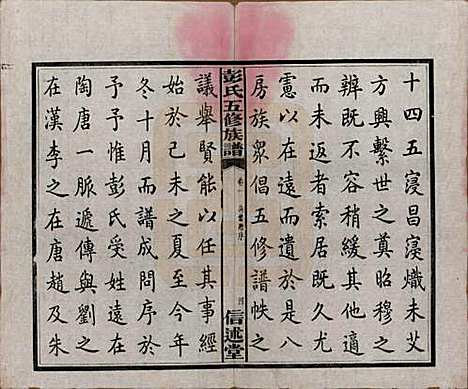 十四五寖昌寖熾未艾
方興繫世之奠昭穆之
辨既不容稍緩其他適
而未返者索居閒處尤
慮以在遠而遺於是八
房族衆倡五修譜帙之
彭氏五修族譜
卷一
四
信述堂
議舉賢能以任其事經
始於己未之夏至今年
冬十月而譜成問序於
予予惟彭氏受姓遠在
陶唐一脈遞傳與劉之
在漢李之在唐趙及朱